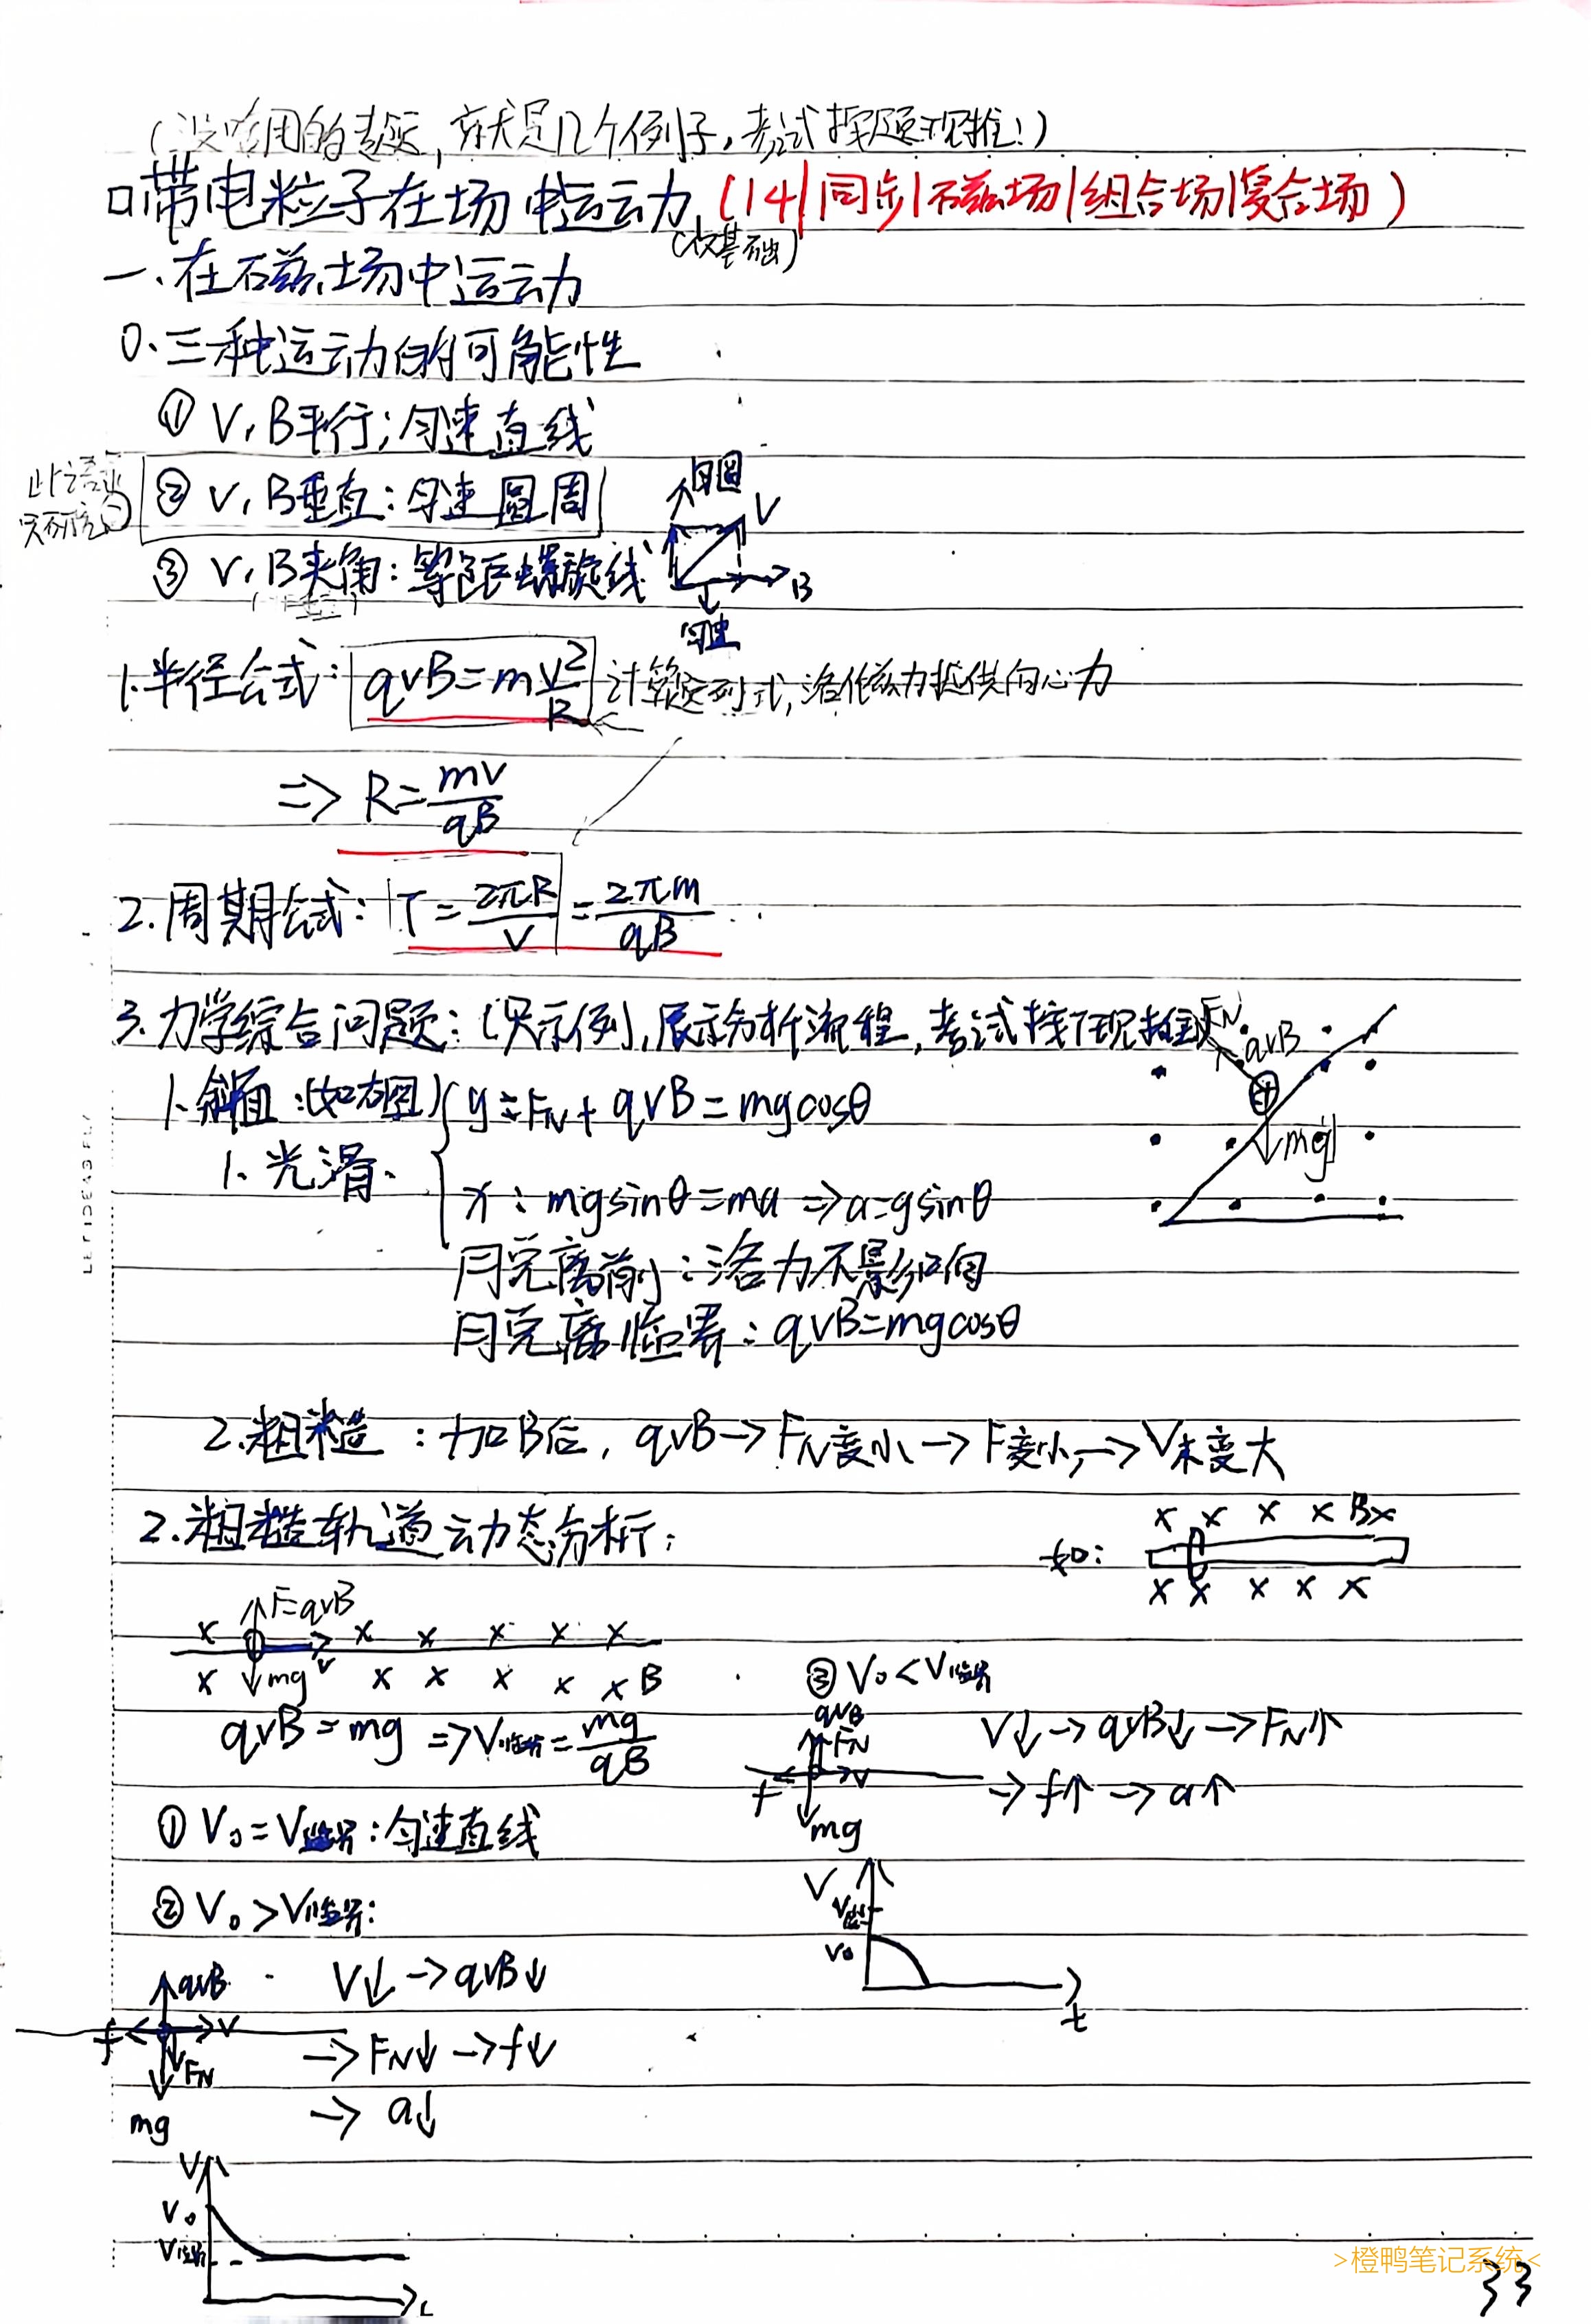 (没啥用的专题,就是几个例子,考试按题现推!)
口带电粒子在场中运动(14|同步|磁场|组合场|复合场)
(仅基础)
一.在磁场中运动
0.三种运动的可能性
① V,B平行;匀速直线
② V,B垂直:匀速圆周
③ V,B夹角:等距螺旋线
匀圆
V
B
匀速
1.半径公式: qvB=m\frac{v^2}{R} 计算题列式,洛伦兹力提供向心力
=> R=\frac{mv}{qB}
2.周期公式: T=\frac{2πR}{v}=\frac{2πm}{qB}
3.力学综合问题:(只示例,展示分析流程,考试按下现推)
FN
qvB
mg
1.斜面:(如右图) y:FN+qvB=mgcosθ
1.光滑. x:mgsinθ=ma=>a=gsinθ
脱离前:洛力不影响
脱离临界:qvB=mgcosθ
2.粗糙:加B后,qvB->FN变小->F变小->V末变大
2.粗糙轨道动态分析:
如:
x x x x Bx
x x x x x
F=qvB
x x x x x x
v
x mg x x x x x B
qvB=mg=>V临界=\frac{mg}{qB}
① V0=V临界:匀速直线
② V0>V临界:
qvB
f
v
FN
mg
V↓->qvB↓
->FN↓->f↓
->a↓
V
V0
V临界
t
③ V0<V临界
qvB
FN
f
v
mg
V↓->qvB↓->FN↑
->f↑->a↑
V
V临界
V0
t
>橙鸭笔记系统<
33